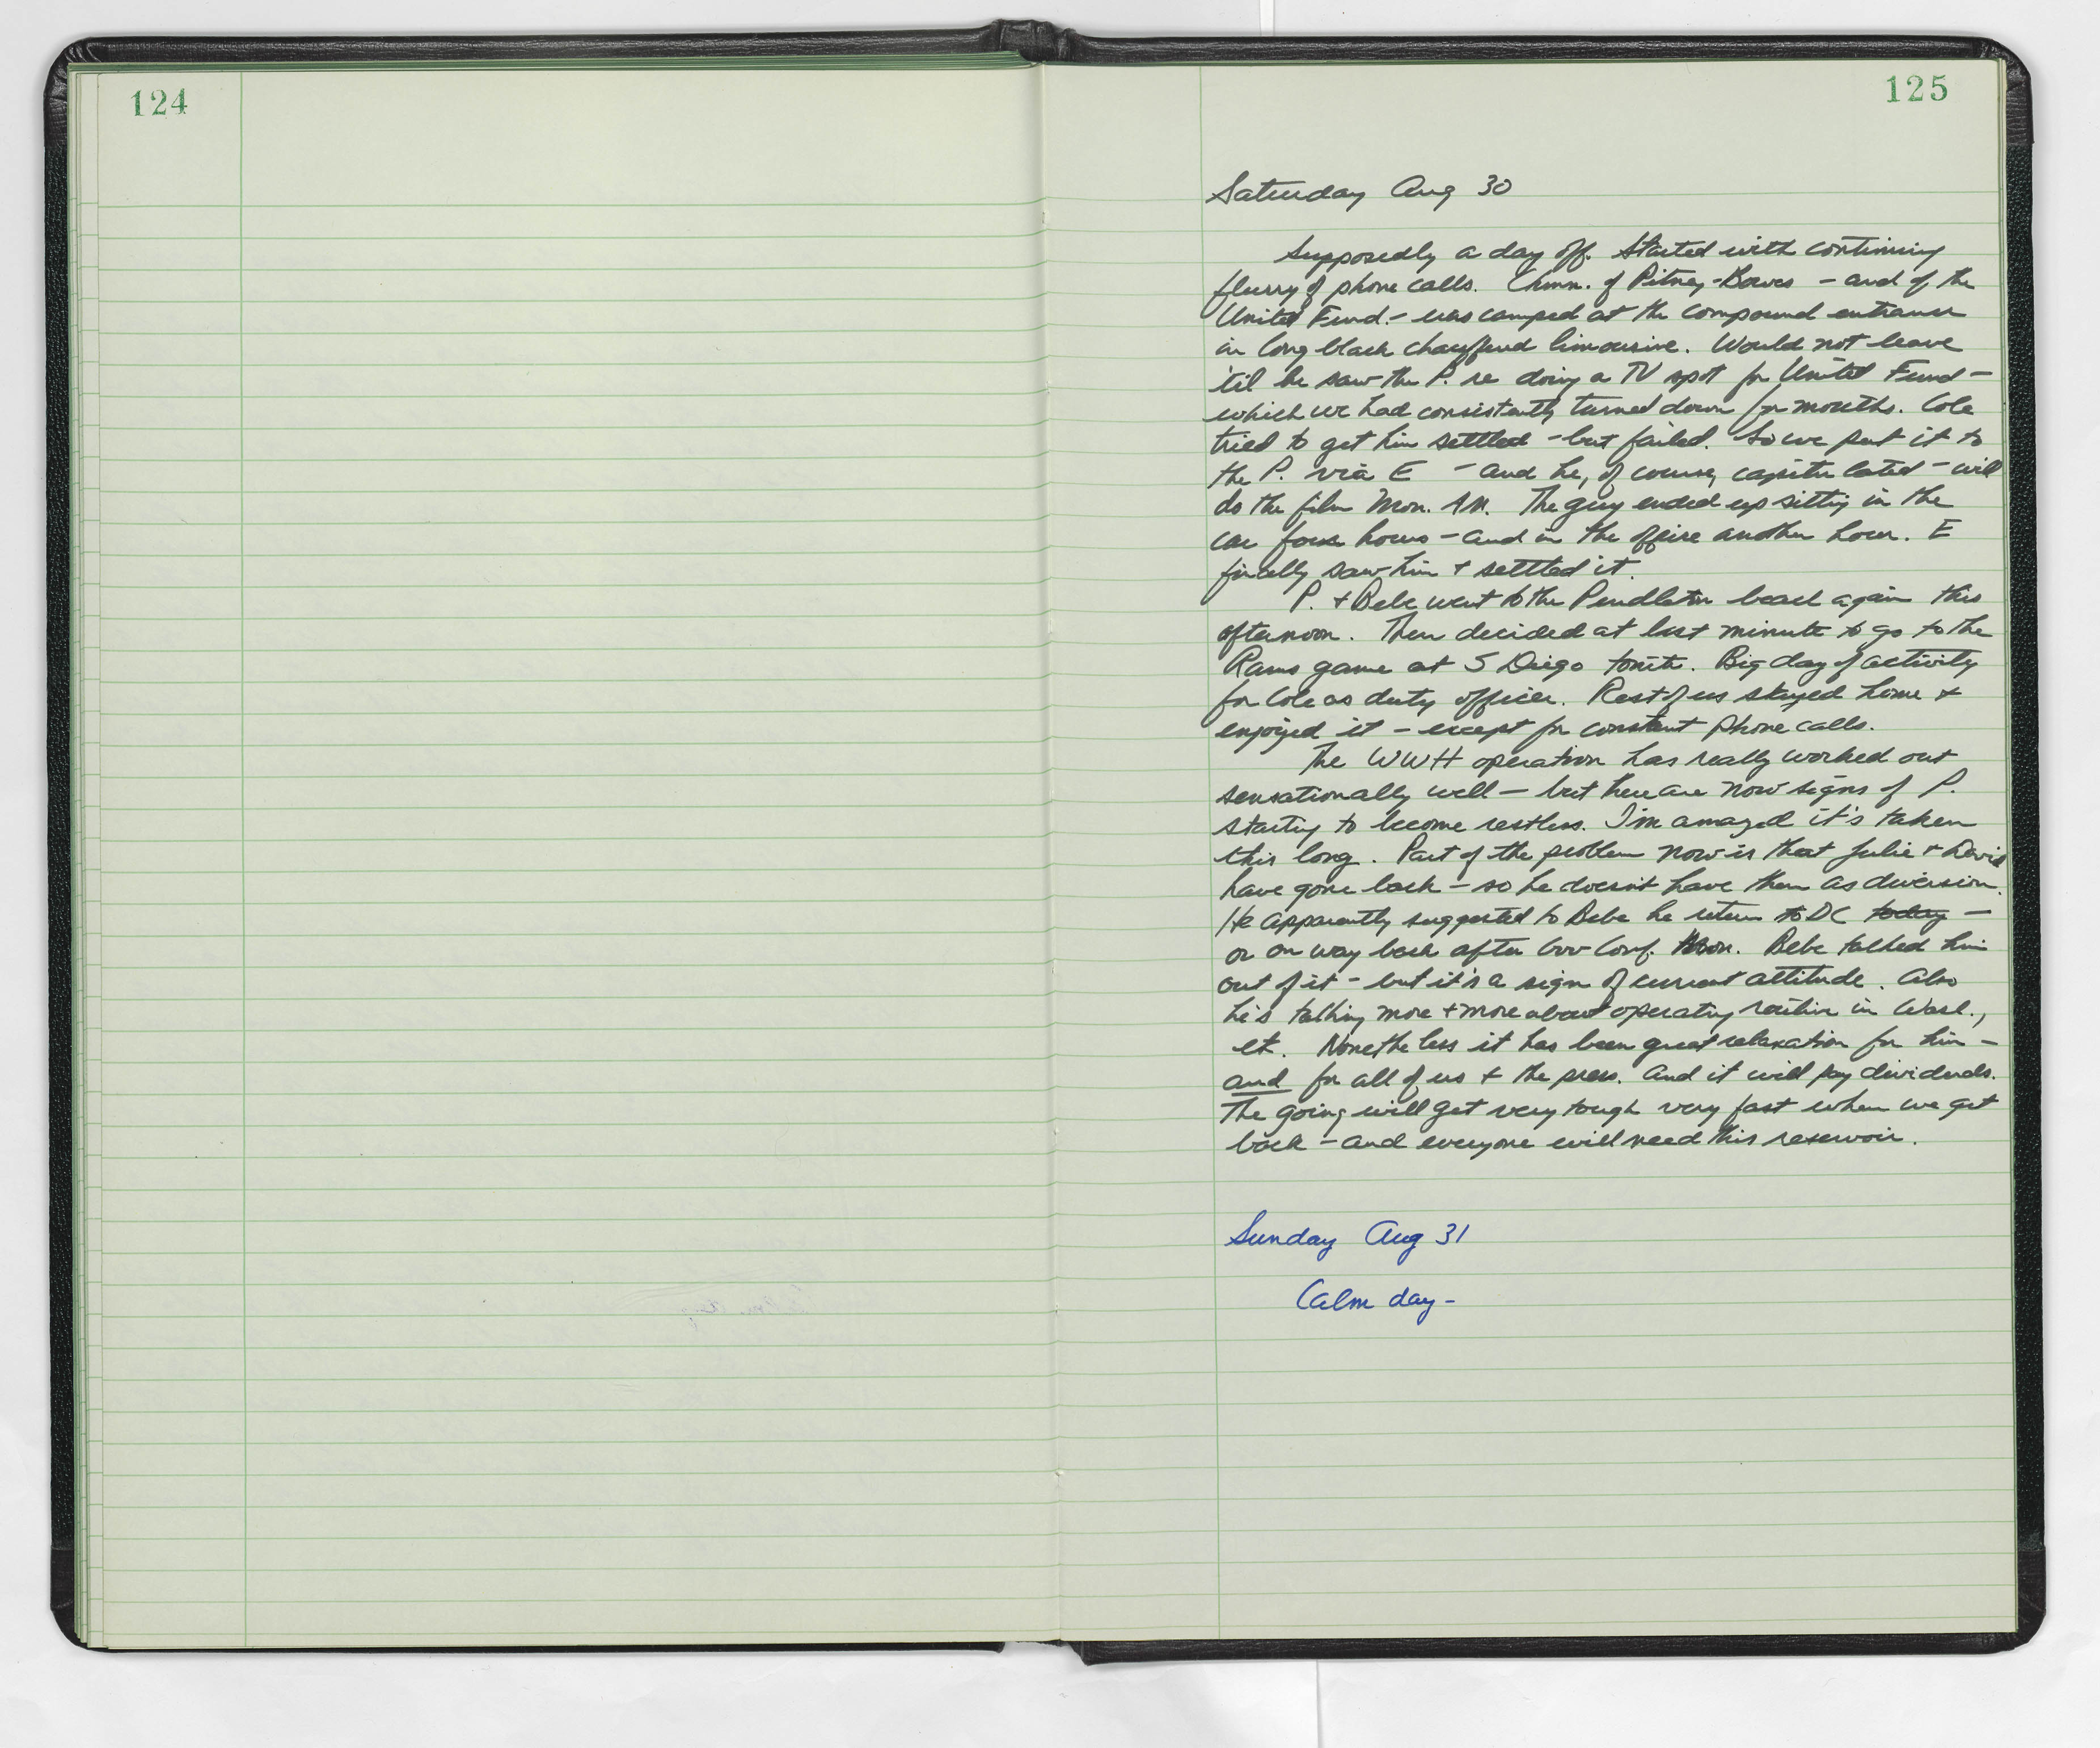 124
125
Saturday Aug 30
Supposedly a day off. Started with continuing
flurry of phone calls. Chmn. of Pitney-Bowes – and of the
United Fund – was camped at the compound entrance
in long black chauffeured limousine. Would not leave
'til he saw the P. re doing a TV spot for United Fund –
which we had consistently turned down for months. Cole
tried to get him settled – but failed. So we put it to
the P. via E – and he, of course, capitulated – will
do the film Mon. AM. The guy ended up sitting in the
car four hours – and in the office another hour. E
finally saw him + settled it.
P. + Bebe went to the Pendleton beach again this
afternoon. Then decided at last minute to go to the
Rams game at S Diego tonite. Big day of activity
for Cole as duty officer. Rest of us stayed home +
enjoyed it – except for constant phone calls.
The WWH operation has really worked out
sensationally well – but there are now signs of P.
starting to become restless. I'm amazed it's taken
this long. Part of the problem now is that Julie + David
have gone back – so he doesn't have them as diversion.
He apparently suggested to Bebe he return to DC today –
or on way back after Gov Conf. Mon. Bebe talked him
out of it – but it's a sign of current attitude. Also
he's talking more + more about operating routine in Wash.,
etc. Nonetheless it has been great relaxation for him –
and for all of us + the press. And it will pay dividends.
The going will get very tough very fast when we get
back – and everyone will need this reservoir.
Sunday Aug 31
Calm day –